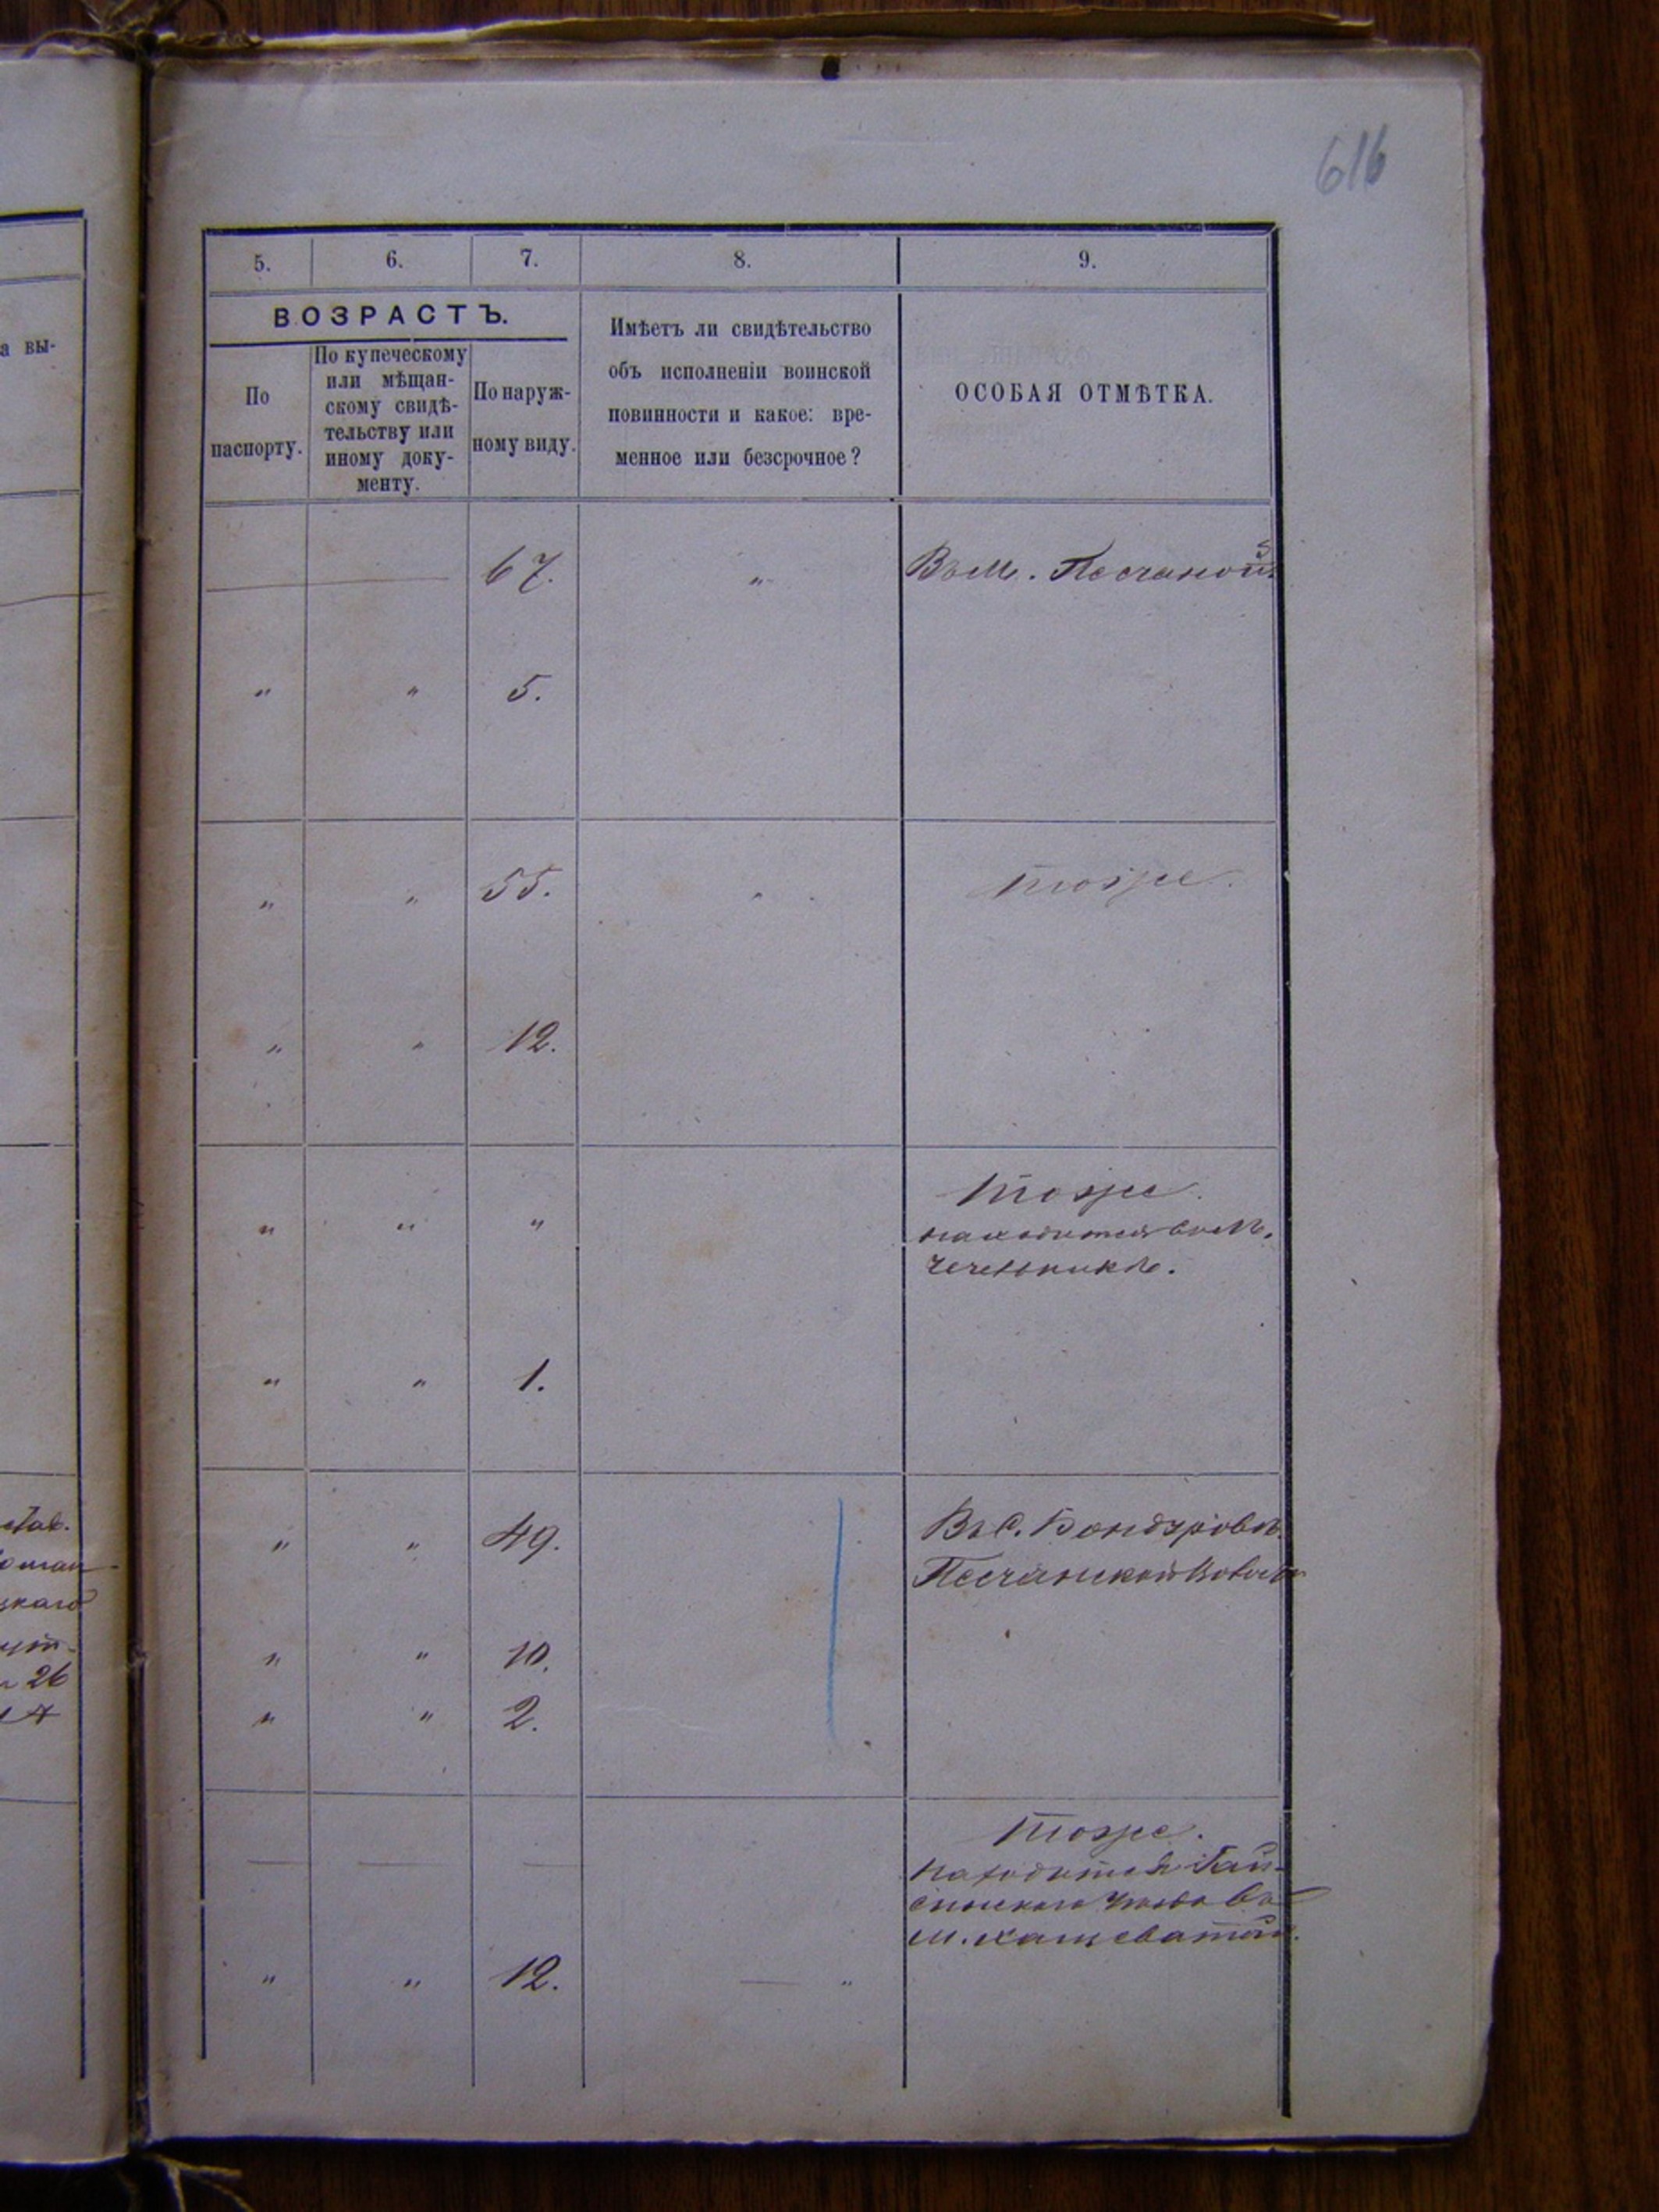 616
5. 6. 7. 8. 9.
ВОЗРАСТЪ.
По
паспорту.
По купеческому
или мѣщан-
скому свидѣ-
тельству или
иному доку-
менту.
По наруж-
ному виду.
Имѣетъ ли свидѣтельство
объ исполненіи воинской
повинности и какое: вре-
менное или безсрочное?
ОСОБАЯ ОТМѢТКА.
а вы-
67. „ Въ м. Песчаной
„ „ 5.
„ „ 55. „ тоже.
„ „ 12.
„ „ „ тоже.
находится въ м.
Чечельникѣ.
„ „ 1.
„ „ 49. Въ С. Бондуровкѣ
Песчанской Волости
„ „ 10.
„ „ 2.
тоже.
находится Гай-
синскаго уѣзда въ
м. Хащеватой.
„ „ 12. „
каго
26